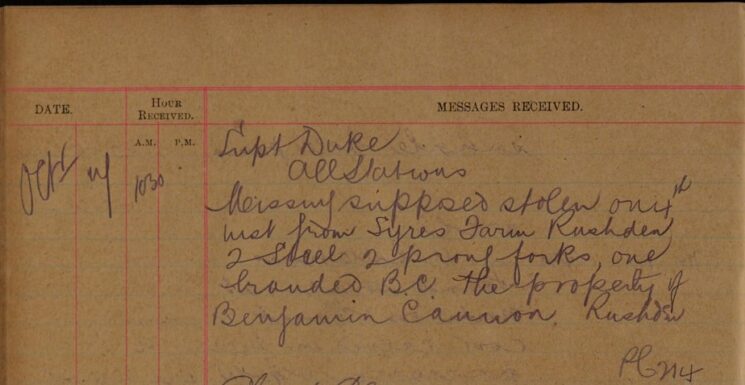 DATE.
HOUR RECEIVED.
A.M. P.M.
MESSAGES RECEIVED.
Octr
1030
Supt Duke
All Stations
Missing supposed stolen on 4th
inst from Syres Farm Rushden
2 Steel 2 prong forks, one
branded B.C. the property of
Benjamin Cannon. Rushden
PC 214